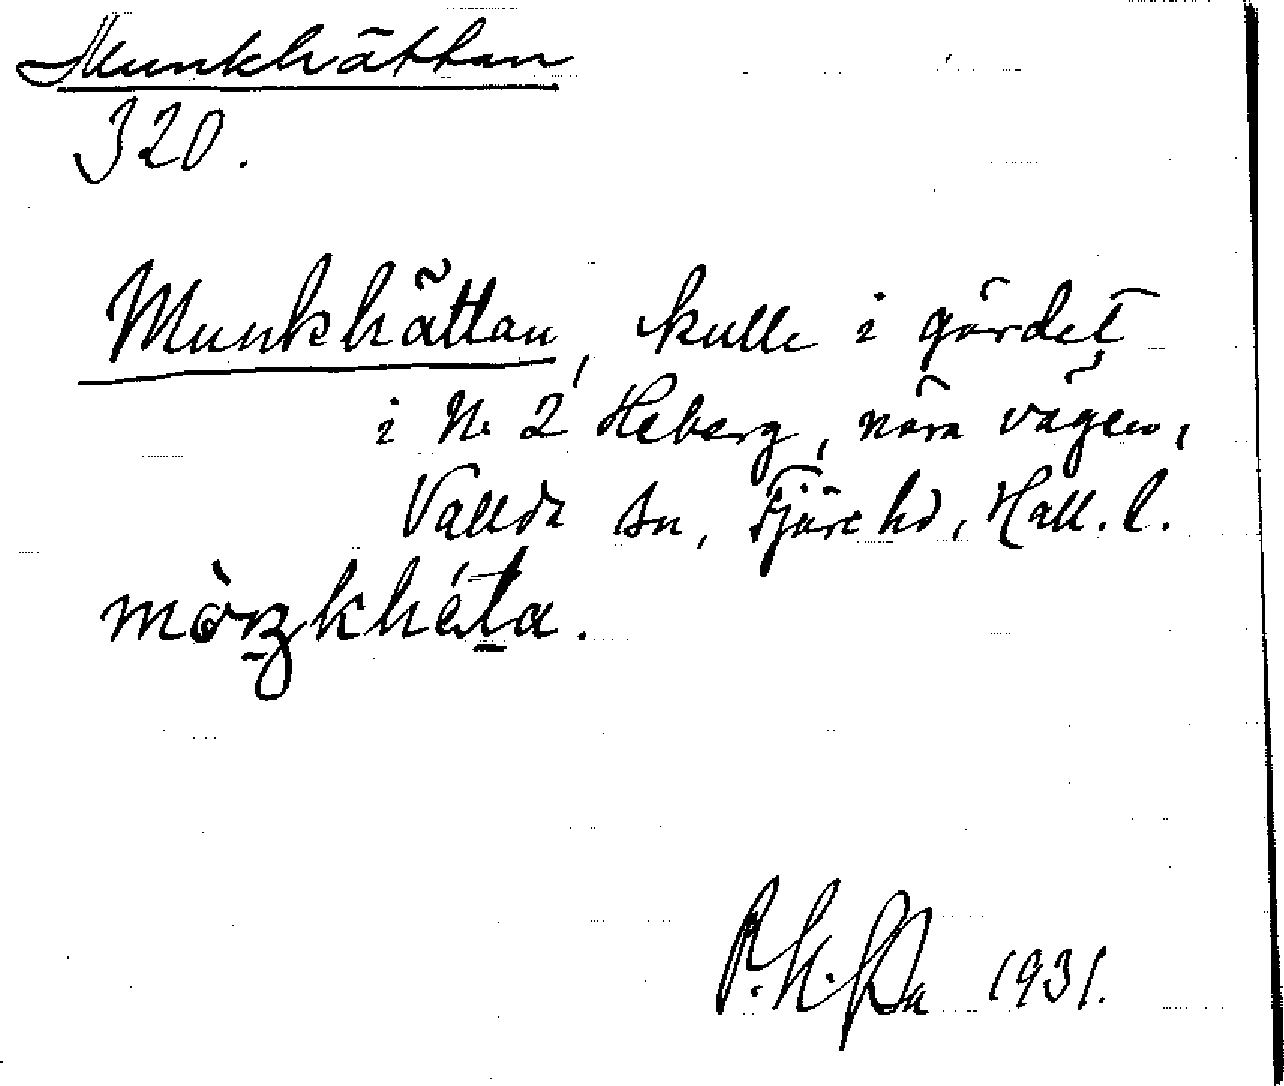 Munkhättan
320.
Munkhättan, kulle i gärdet
i N. 2 Heberg, nära vägen,
Vallda sn, Fjäre hd, Hall. l.
1931.